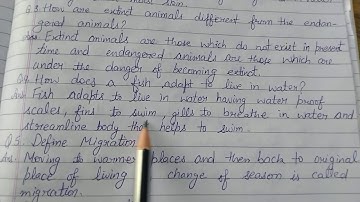 Q3. How are extinct animals different from the endan-
gered animals?
Ans. Extinct animals are those which do not exist in present
time and endangered animals are those which are
under the danger of becoming extinct.
Q4. How does a fish adapt to live in water?
Ans. Fish adapts to live in water having water proof
scales, fins to swim, gills to breathe in water and
streamline body that helps to swim.
Q5. Define Migration
Ans. Moving to warmer places and then back to original
place of living change of season is called
migration.